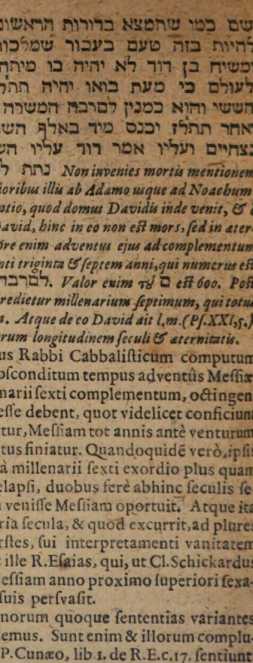 שם כמי שתמצא בדורות הראשונ
להיות בזה טעם בעבור שמלכות
ומשיח בן דוד לא יהיה בו מיתה
לעולם כי מעת בואו יהיה תתלז
הששי והוא כמנין לםרבה המשרה
אחר תתלז יכנס מיד באלף הש
נצחיים ועליו אמר דוד עליו הש
נתת ל Non invenies mortis mentionem
ioribus illis ab Adamo usque ad Noachum
ptio, quod domus Davidis inde venit, &
David, hinc in eo non est mors, sed in æter
ore enim adventus ejus ad complementum
nti triginta & septem anni, qui numerus est
לםרבה. Valor enim τȣ ם est 600. Post
redietur millenarium septimum, qui totus
a. Atque de eo David ait l, m. (Ps. XXI, 5.)
rum longitudinem seculi & æternitatis.
us Rabbi Cabbalisticum computum
bsconditum tempus adventûs Messiæ
narii sexti complementum, octingen
esse debent, quot videlicet conficiun
tur, Messiam tot annis antè venturum
tus finiatur. Quandoquidē verò, ipsi
à millenarii sexti exordio plus quam
elapsi, duobus ferè abhinc seculis se
venisse Messiam oportuit. Atque ita
ria secula, & quod excurrit, ad plures
rstes, sui interpretamenti vanitatem
ille R. Esaias, qui, ut Cl. Schickardus
essiam anno proximo superiori sexa
suis persvasit.
norum quoque sententias variantes
emus. Sunt enim & illorum complu
P. Cunæo, lib 1. de R. E. c. 17. sentiunt